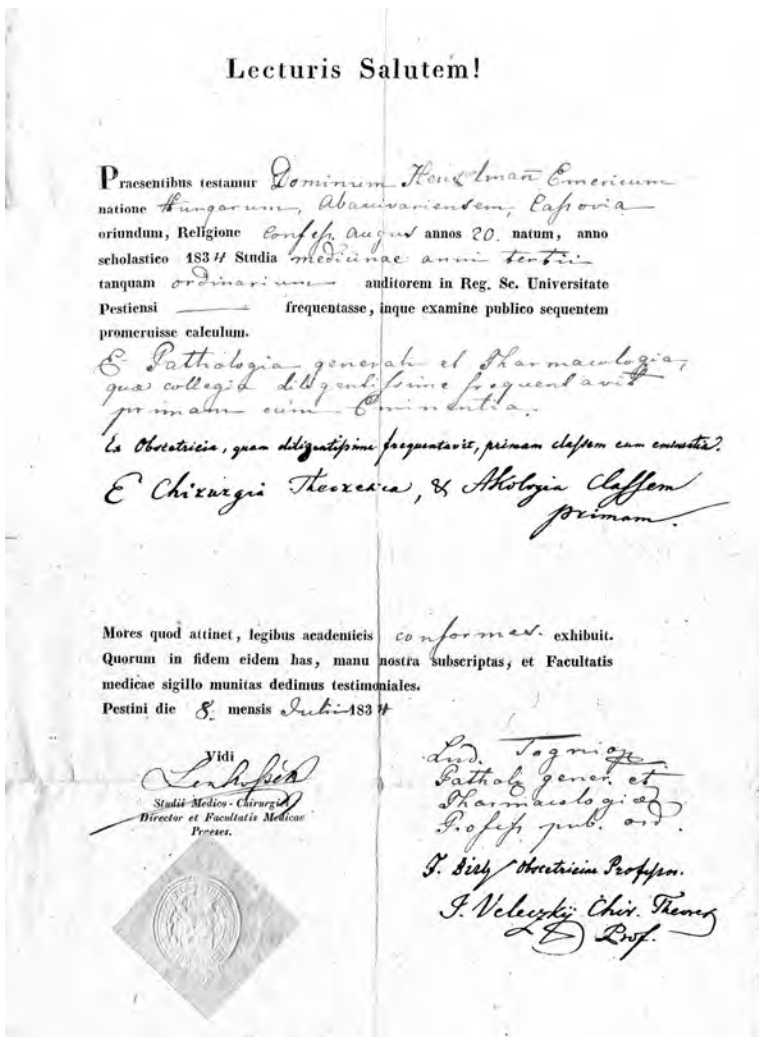 Lecturis Salutem!
Praesentibus testamur Dominum Henszlmañ Emericum
natione Hungarum, Abaujvariensem, Cassovia
oriundum, Religione Confess. August annos 20. natum, anno
scholastico 1834 Studia medicinae anni tertii
tanquam ordinarium auditorem in Reg. Sc. Universitate
Pestiensi frequentasse, inque examine publico sequentem
promeruisse calculum.
E Pathologia generali et Pharmacologia,
quae collegia diligentissime frequentavit
primam cum Eminentia.
Ex Obstetricia, quam diligentissime frequentavit, primam classem cum eminentia.
E Chirurgia Theoretica, & Akologia Classem
primam.
Mores quod attinet, legibus academicis conformes. exhibuit.
Quorum in fidem eidem has, manu nostra subscriptas, et Facultatis
medicae sigillo munitas dedimus testimoniales.
Pestini die 8. mensis Julii 1834
Vidi
Lenhossék
Studii Medico-Chirurgici
Director et Facultatis Medicae
Praeses.
Lud. Tognio
Pathol. gener. et
Pharmacologiae
Profess. pub. ord.
F. Birly Obstetriciae Professor.
J. Veleczkij Chir. Theoret
Prof.